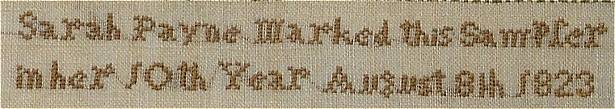 Sarah Payne Marked this Sampler
in her 10th Year August 8th 1823